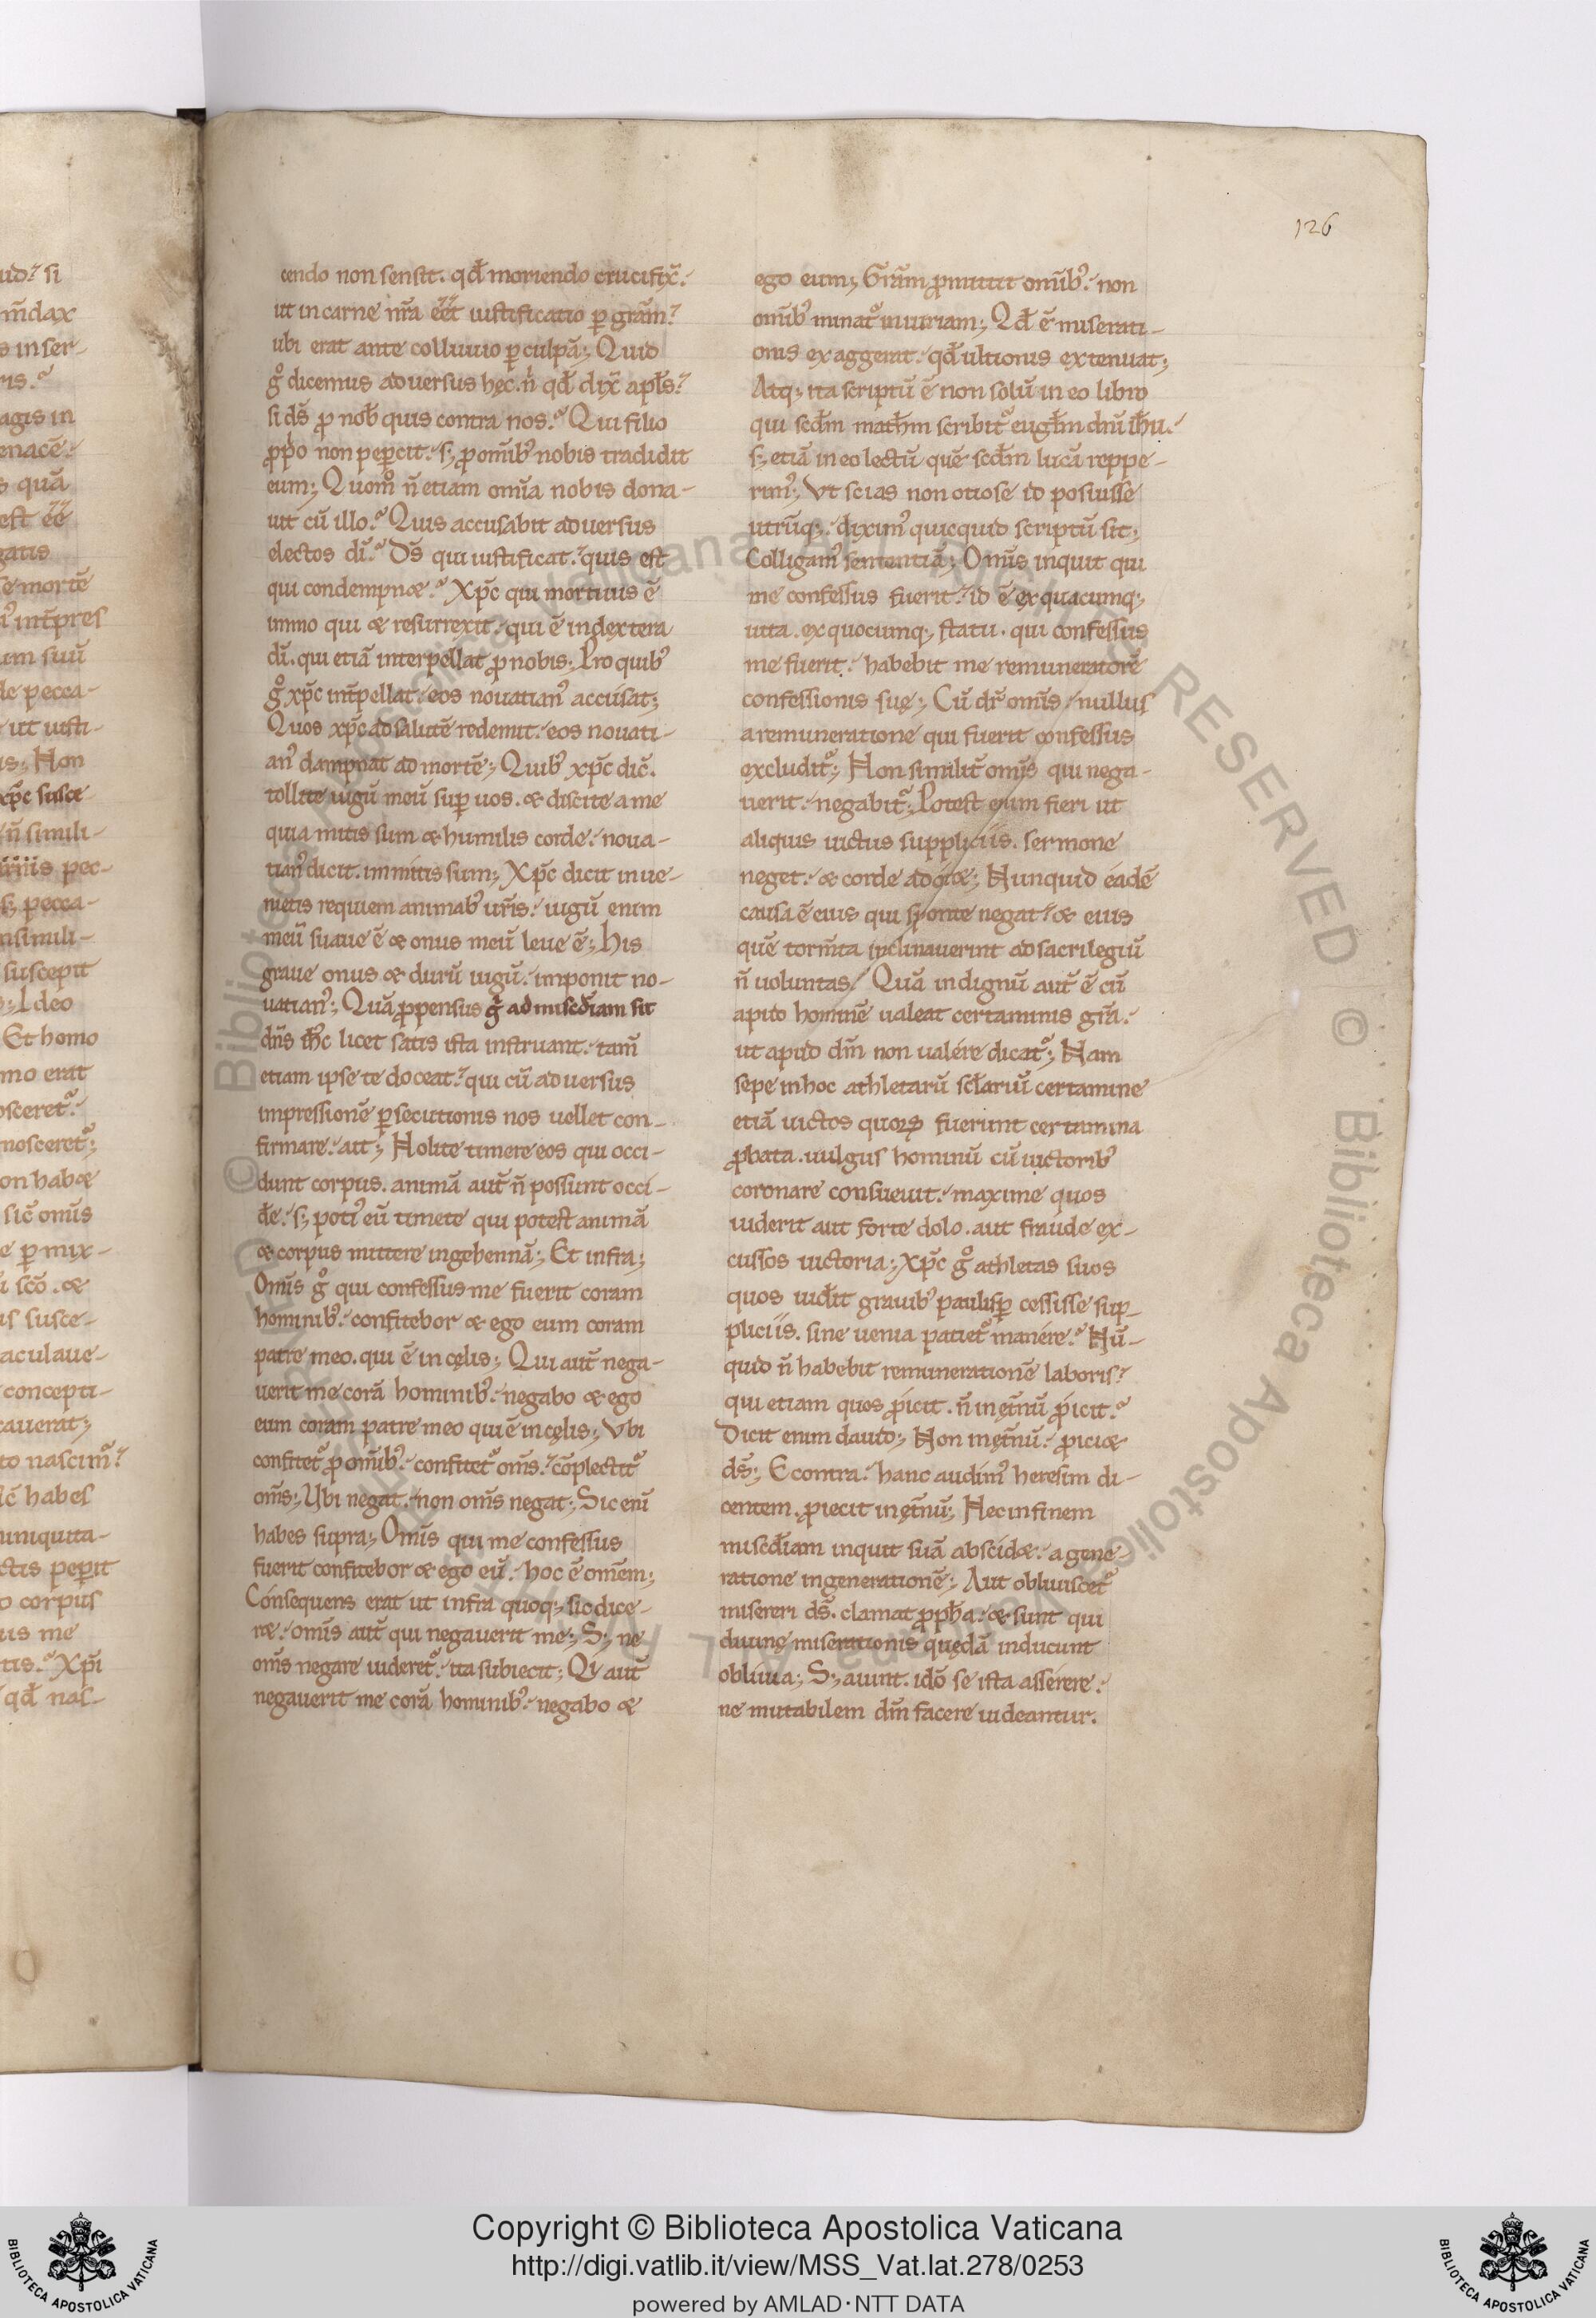 126
cendo non sensit. qđ moriendo crucifix̄.
ut in carne nr̄a eēt iustificatio ꝑ grām.
ubi erat ante colluuio ꝑ culpā; Quid
gͦ dicemus aduersus hęc. n̄ qđ dix̄ apl̄s.
si ds̄ ꝓ nob̄ quis contra nos. Qui filio
ꝓpͥo non peꝑcit. s; ꝓ omīb; nobis tradidit
eum; Quomͦ n̄ etiam omīa nobis dona-
uit cū illo. Quis accusabit aduersus
electos dī. Ds̄ qui iustificat. quis est
qui condempnæ. Xp̄c qui mortuus ē
immo qui æ resurrexit. qui ē in dextera
dī. qui etiā interpellat ꝓ nobis; Pro quib;
gͦ xp̄c int̄pellat. eos nouatianꝰ accusat;
Quos xp̄c ad salutē redemit. eos nouati-
anꝰ dampnat ad mortē; Quib; xp̄c dic̄.
tollite iugū meū suꝑ uos. æ discite a me
quia mitis sum æ humilis corde. noua-
tianꝰ dicit. immitis sum; Xp̄c dicit inue-
nietis requiem animab; ur̄is. iugū enim
meū suaue ē æ onus meū leue ē; His
graue onus æ durū iugū. imponit no-
uatianꝰ; Quā ꝓpensus gͦ ad misc̄diam sit
dn̄s ih̄c licet satis ista instruant. tam̄
etiam ipse te doceat. qui cū aduersus
impressionē ꝑsecutionis nos uellet con-
firmare. ait; Nolite timere eos qui occi-
dunt corpus. animā aut̄ n̄ possunt occi-
đe. s; potiꝰ eū timete qui potest animā
æ corpus mittere in gehennā; Et infra;
Omīs gͦ qui confessus me fuerit coram
hominib;. confitebor æ ego eum coram
patre meo. qui ē in cęlis; Qui aut̄ nega-
uerit me corā hominib;. negabo æ ego
eum coram patre meo qui ē in cęlis; Vbi
confitet᷑ ꝓ omīb;. confitet᷑ omīs. cōplectit᷑
omīs; Ubi negat. non omīs negat; Sic enī
habes supra; Omīs qui me confessus
fuerit confitebor æ ego eū. hoc ē omēm;
Consequens erat ut infra quoq; sic dice-
ræ. omīs aut̄ qui negauerit me; S; ne
omīs negare uideret᷑. ita subiecit; Qi aut̄
negauerit me corā hominib;. negabo æ
ego eum; Grām ꝓmittit omīb;. non
omīb; minat᷑ iniuriam; Qđ ē miserati-
onis exaggerat. qđ ultionis extenuat;
Atq; ita scriptū ē non solū in eo libro
qui scđm math̄m scribit᷑ eugl̄m dn̄i ih̄u.
s; etiā in eo lectū quē scđm lucā reppe-
rimꝰ; Vt scias non otiose id posuisse
utrūq;. diximꝰ quicquid scriptū sit;
Colligamꝰ sententiā; Omīs inquit qui
me confessus fuerit. id ē ex quacumq;
uita. ex quocumq; statu. qui confessus
me fuerit. habebit me remuneratorē
confessionis suę; Cū dr̄ omīs. nullus
a remuneratione qui fuerit confessus
excludit᷑; Non similit̄ omīs qui nega-
uerit. negabit᷑; Potest enim fieri ut
aliquis uictus suppliciis. sermone
neget. æ corde adoræ; Nunquid eadē
causa ē eius qui sponte negat. æ eius
quē torm̄ta inclinauerint ad sacrilegiū
n̄ uoluntas. Quā indignū aut̄ ē cū
apud hominē ualeat certaminis grā.
ut apud dm̄ non ualere dicat᷑; Nam
sepe in hoc athletarū scl̄ariū certamine
etiā uictos quoꝝ fuerunt certamina
ꝓbata. uulgus hominū cū uictorib;
coronare consueuit. maxime quos
uiderit aut forte dolo. aut fraude ex-
cussos uictoria; Xp̄c gͦ athletas suos
quos uiđit grauib; paulisꝑ cessisse sup-
pliciis. sine uenia patiet᷑ manere. Nū-
quid n̄ habebit remunerationē laboris.
qui etiam quos ꝓicit. n̄ in ęt̄nū ꝓicit.
Dicit enim dauid; Non in ęt̄nū. ꝓiciæ
ds̄; E contra. hanc audimꝰ heresim di-
centem. ꝓiecit in ęt̄nū; Nec in finem
misc̄diam inquit suā abscidæ. a gene-
ratione in generationē; Aut obliuiscet᷑
misereri ds̄. clamat ꝓph̄a. æ sunt qui
diuinę miserationis quędā inducunt
obliuia; S; aiunt. idō se ista asserere.
ne mutabilem dm̄ facere uideantur.
Copyright © Biblioteca Apostolica Vaticana
http://digi.vatlib.it/view/MSS_Vat.lat.278/0253
powered by AMLAD·NTT DATA